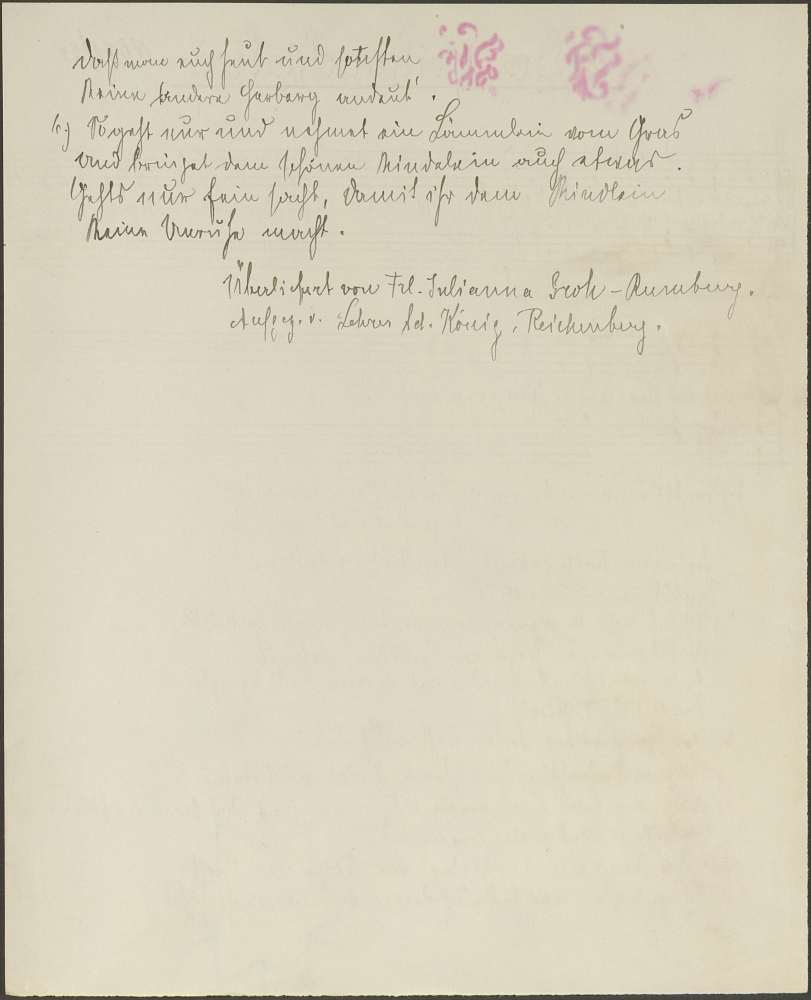 daß man euch heut und
keine andere Herberg andeut'.
6.) So geht nur und nehmet ein Lämmlein vom Gras
und bringet dem schönen Kindelein auch etwas.
Gehts nur fein sacht, damit ihr dem Kindlein
keine Unruhe macht.
Überliefert von Frl. Julianna Grohs - Rumburg.
Aufgez. v. Lehrer Ad. König, Reichenberg.